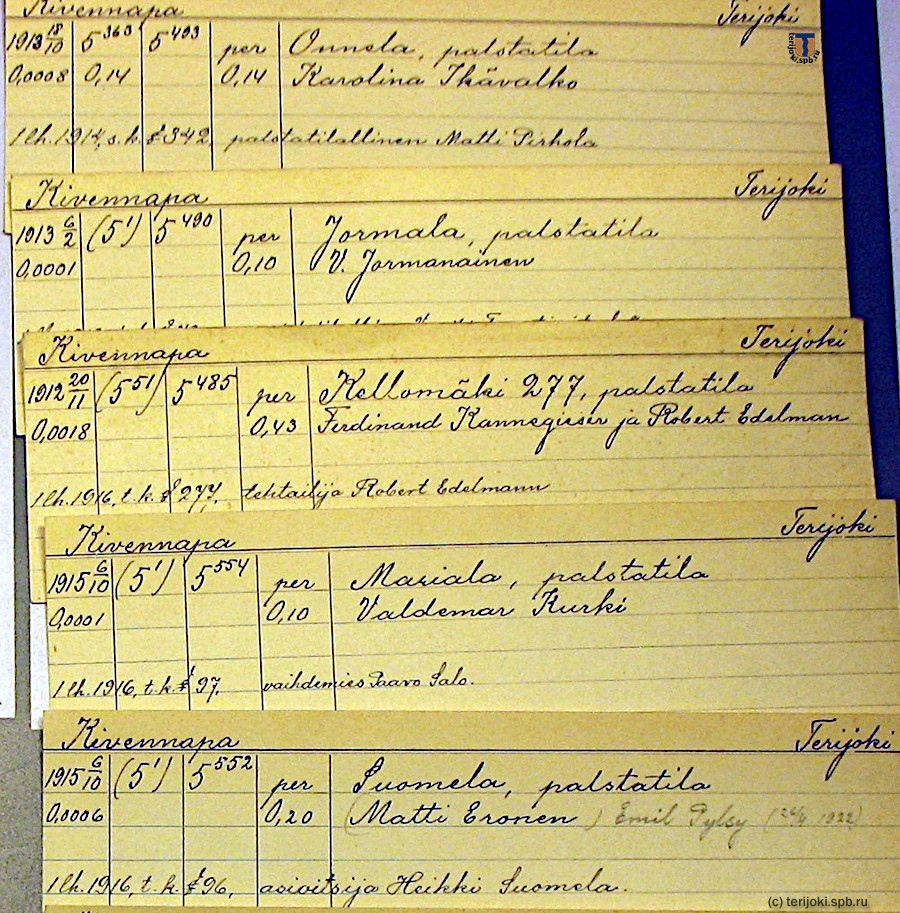 Kivennapa Terijoki
1913 18/10 5 360 5 493 per Onnela, palstatila
0,0008 0,14 0,14 Karolina Ikävalko
1 lh. 1914, s. k. § 342, palstatilallinen Matti Pirhola
terijoki.spb.ru
Kivennapa Terijoki
1913 6/2 (5 1) 5 490 per Jormala, palstatila
0,0001 0,10 V. Jormanainen
Kivennapa Terijoki
1912 20/11 (5 51) 5 485 per Kellomäki 277, palstatila
0,0018 0,43 Ferdinand Kannegieser ja Robert Edelman
1 lh. 1916, t. k. § 277, tehtailija Robert Edelmann
Kivennapa Terijoki
1915 6/10 (5 1) 5 554 per Mariala, palstatila
0,0001 0,10 Valdemar Kurki
1 lh. 1916, t. k. § 97, vaihdemies Paavo Salo.
Kivennapa Terijoki
1915 6/10 (5 1) 5 552 per Suomela, palstatila
0,0006 0,20 (Matti Eronen) Emil Pylsy (24/4 1922)
1 lh. 1916, t. k. § 96, asioitsija Heikki Suomela.
(c) terijoki.spb.ru